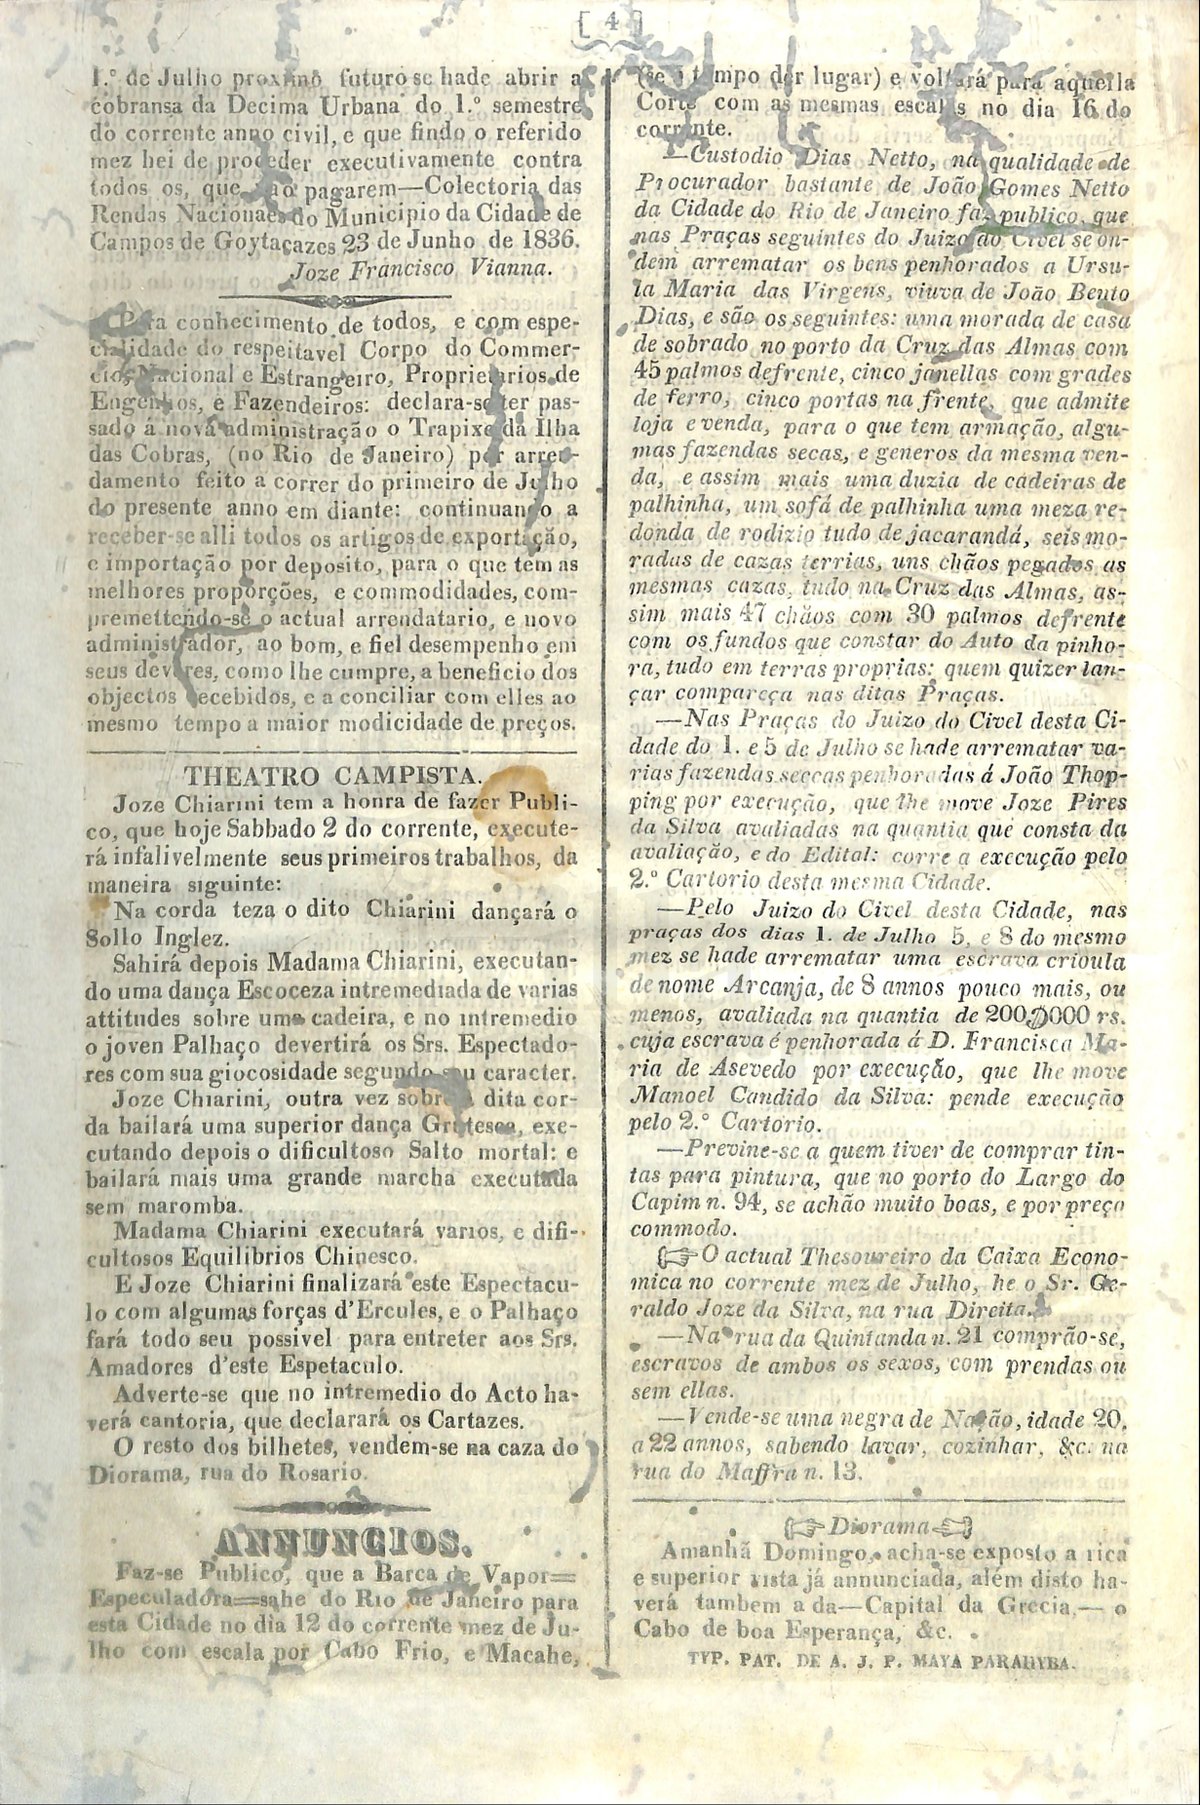 [ 4 ]
1.º de Julho proximo futuro se hade abrir a
cobransa da Decima Urbana do 1.º semestre
do corrente anno civil, e que findo o referido
mez hei de proceder executivamente contra
todos os, que não pagarem—Colectoria das
Rendas Nacionaes do Municipio da Cidade de
Campos de Goytaçazes 23 de Junho de 1836.
Joze Francisco Vianna.
Para conhecimento de todos, e com espe-
cialidade do respeitavel Corpo do Commer-
cio, Nacional e Estrangeiro, Proprietarios de
Engenhos, e Fazendeiros: declara-se ter pas-
sado a nova administração o Trapixe da Ilha
das Cobras, (no Rio de Janeiro) por arren-
damento feito a correr do primeiro de Julho
do presente anno em diante: continuando a
receber-se alli todos os artigos de exportação,
e importação por deposito, para o que tem as
melhores proporções, e commodidades, com-
premettendo-se o actual arrendatario, e novo
administrador, ao bom, e fiel desempenho em
seus deveres, como lhe cumpre, a beneficio dos
objectos recebidos, e a conciliar com elles ao
mesmo tempo a maior modicidade de preços.
THEATRO CAMPISTA.
Joze Chiarini tem a honra de fazer Publi-
co, que hoje Sabbado 2 do corrente, execute-
rá infalivelmente seus primeiros trabalhos, da
maneira siguinte:
Na corda teza o dito Chiarini dançará o
Sollo Inglez.
Sahirá depois Madama Chiarini, executan-
do uma dança Escoceza intremediada de varias
attitudes sobre uma cadeira, e no intremedio
o joven Palhaço devertirá os Srs. Espectado-
res com sua giocosidade segundo seu caracter.
Joze Chiarini, outra vez sobre a dita cor-
da bailará uma superior dança Grutesca, exe-
cutando depois o dificultoso Salto mortal: e
bailará mais uma grande marcha executada
sem maromba.
Madama Chiarini executará varios, e difi-
cultosos Equilibrios Chinesco.
E Joze Chiarini finalizará este Espectacu-
lo com algumas forças d'Ercules, e o Palhaço
fará todo seu possivel para entreter aos Srs.
Amadores d'este Espetaculo.
Adverte-se que no intremedio do Acto ha-
verá cantoria, que declarará os Cartazes.
O resto dos bilhetes, vendem-se na caza do
Diorama, rua do Rosario.
ANNUNCIOS.
Faz-se Publico, que a Barca de Vapor=
Especuladora=sahe do Rio de Janeiro para
esta Cidade no dia 12 do corrente mez de Ju-
lho com escala por Cabo Frio, e Macahe,
(se o tempo der lugar) e voltará para aquella
Corte com as mesmas escallas no dia 16 do
corrente.
—Custodio Dias Netto, na qualidade de
Procurador bastante de João Gomes Netto
da Cidade do Rio de Janeiro faz publico, que
nas Praças seguintes do Juizo do Civel se on-
dem arrematar os bens penhorados a Ursu-
la Maria das Virgens, viuva de João Bento
Dias, e são os seguintes: uma morada de casa
de sobrado no porto da Cruz das Almas com
45 palmos defrente, cinco janellas com grades
de ferro, cinco portas na frente, que admite
loja e venda, para o que tem armação, algu-
mas fazendas secas, e generos da mesma ven-
da, e assim mais uma duzia de cadeiras de
palhinha, um sofá de palhinha uma meza re-
donda de rodizio tudo de jacarandá, seis mo-
radas de cazas terrias, uns chãos pegados as
mesmas cazas, tudo na Cruz das Almas, as-
sim mais 47 chãos com 30 palmos defrente
com os fundos que constar do Auto da pinho-
ra, tudo em terras proprias: quem quizer lan-
çar compareça nas ditas Praças.
—Nas Praças do Juizo do Civel desta Ci-
dade do 1. e 5 de Julho se hade arrematar va-
rias fazendas seccas penhoradas á João Thop-
ping por execução, que lhe move Joze Pires
da Silva avaliadas na quantia que consta da
avaliação, e do Edital: corre a execução pelo
2.º Cartorio desta mesma Cidade.
—Pelo Juizo do Civel desta Cidade, nas
praças dos dias 1. de Julho 5, e 8 do mesmo
mez se hade arrematar uma escrava crioula
de nome Arcanja, de 8 annos pouco mais, ou
menos, avaliada na quantia de 200$000 rs.
cuja escrava é penhorada á D. Francisca Ma-
ria de Asevedo por execução, que lhe move
Manoel Candido da Silva: pende execução
pelo 2.º Cartorio.
—Previne-se a quem tiver de comprar tin-
tas para pintura, que no porto do Largo do
Capim n. 94, se achão muito boas, e por preço
commodo.
O actual Thesoureiro da Caixa Econo-
mica no corrente mez de Julho, he o Sr. Ge-
raldo Joze da Silva, na rua Direita.
—Na rua da Quintanda n. 21 comprão-se,
escravos de ambos os sexos, com prendas ou
sem ellas.
—Vende-se uma negra de Nação, idade 20,
a 22 annos, sabendo lavar, cozinhar, &c. na
rua do Maffra n. 13.
Diorama
Amanhã Domingo, acha-se exposto a rica
e superior vista já annunciada, além disto ha-
verá tambem a da—Capital da Grecia,— o
Cabo de boa Esperança, &c.
TYP. PAT. DE A. J. P. MAYA PARAHYBA.